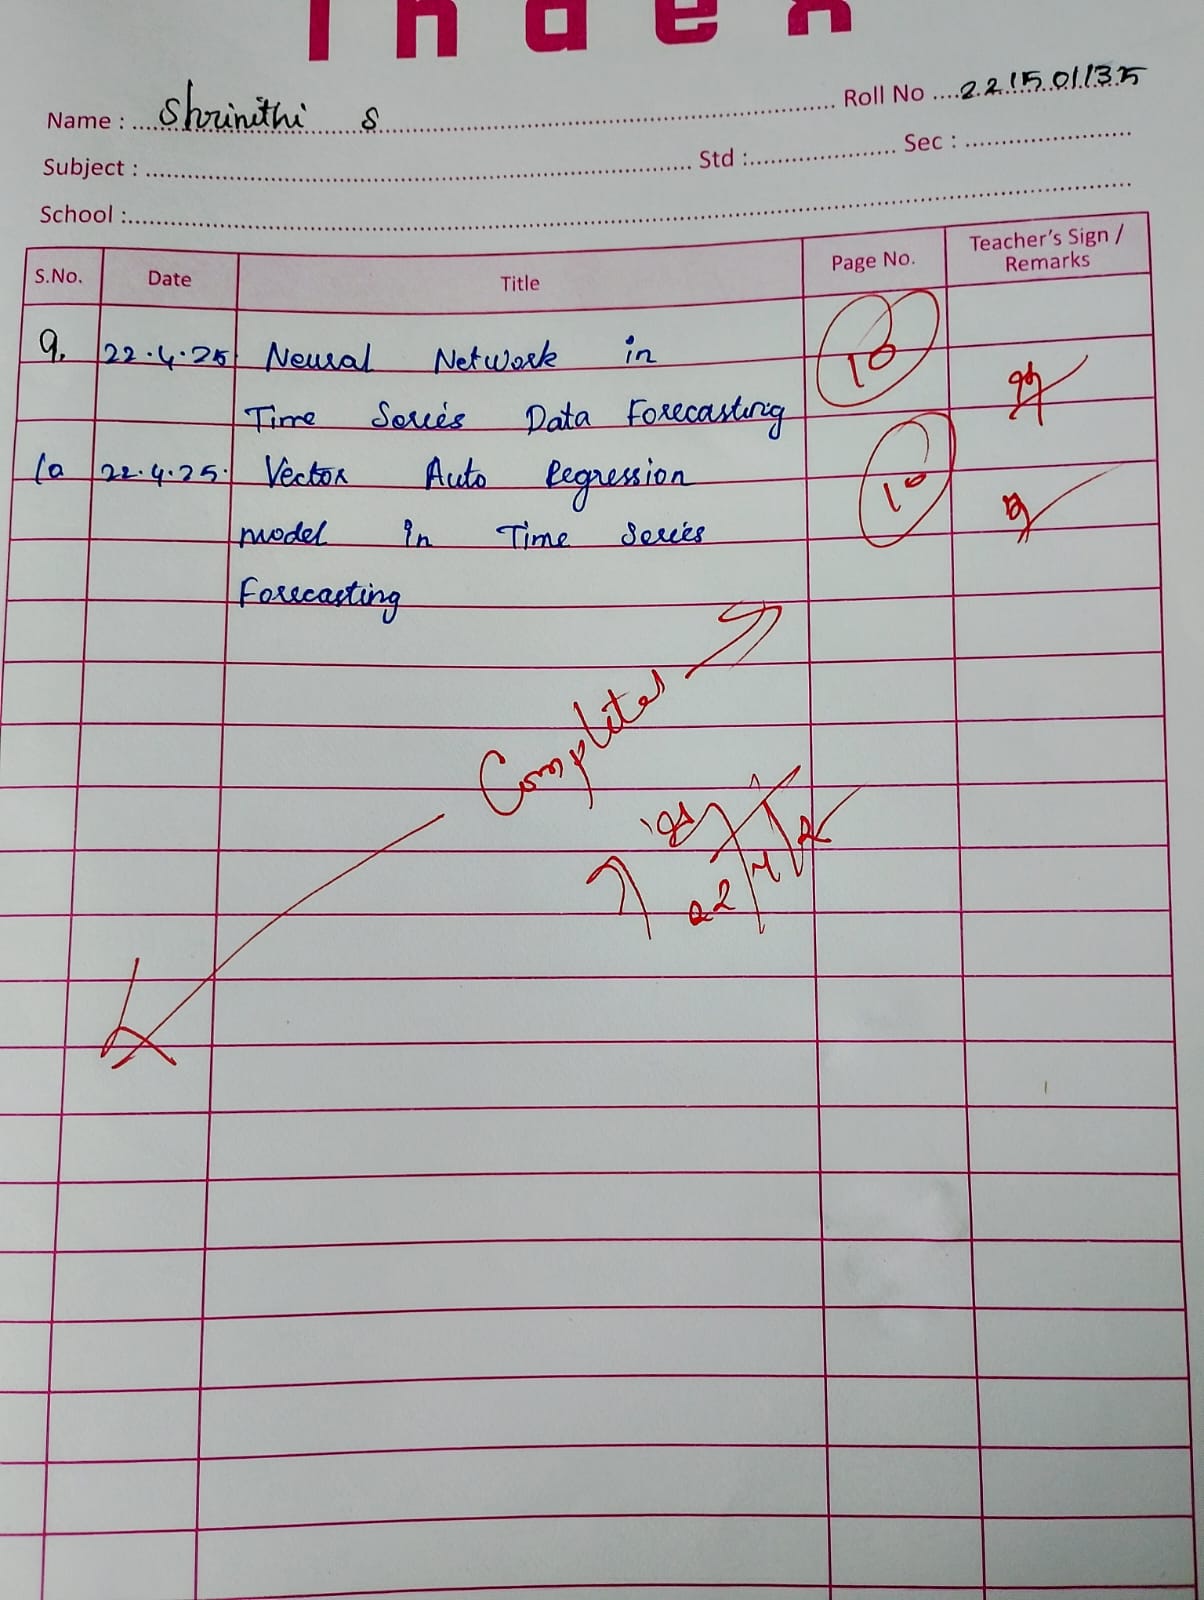 Index
Name : Shrinithi S Roll No 221501135
Subject : Std : Sec :
School :
S.No. Date Title Page No. Teacher's Sign / Remarks
9. 22.4.25 Neural Network in 10
Time Series Data Forecasting
10 22.4.25. Vector Auto Regression 10
model in Time Series
Forecasting
Completed
22/4/25